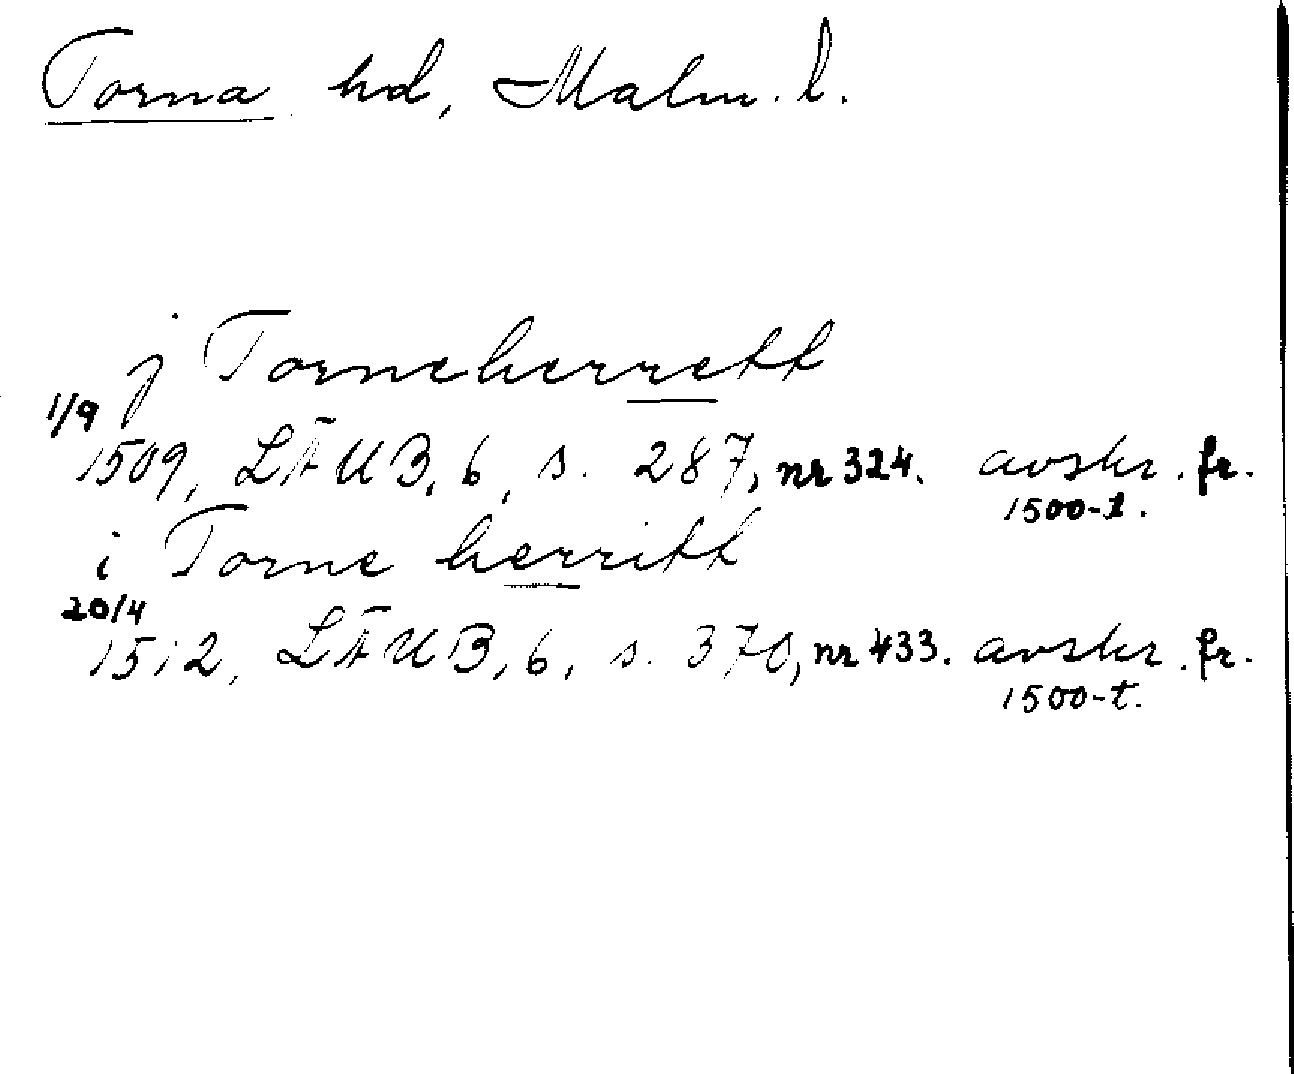 Torna hd, Malm. l.
j Torneherrett
1/9
1509, LÄUB, 6, s. 287, nr 324. avskr. fr.
1500-t.
i Torne herritt
20/4
1512, LÄUB, 6, s. 370, nr 433. avskr. fr.
1500-t.